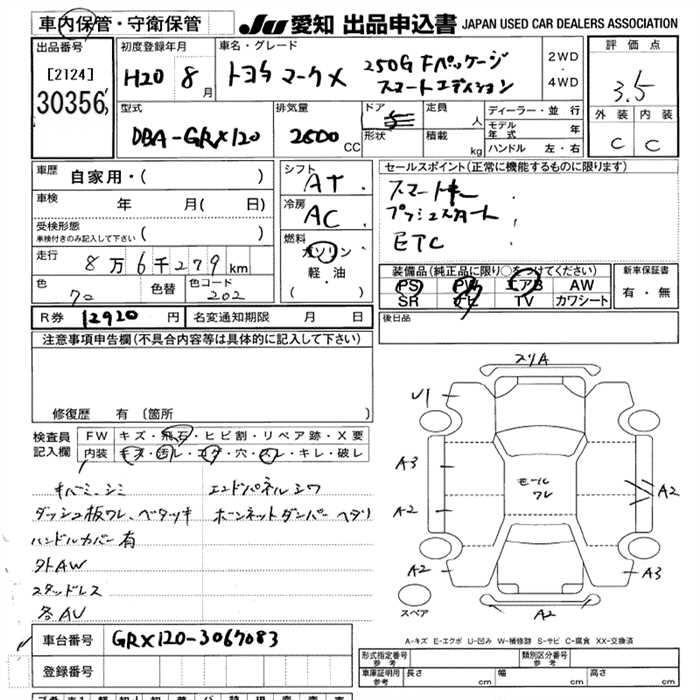 車内保管・守衛保管 JU 愛知 出品申込書 JAPAN USED CAR DEALERS ASSOCIATION
出品番号 初度登録年月 車名・グレード 評価点
[2124] H20 8月 トヨタ マークX 250G Fパッケージ 2WD 3.5
30356 スマートエディション 4WD
外装 内装
型式 排気量 ドア 5 定員 人 ディーラー・並行
DBA-GRX120 2500 CC 形状 積載 kg モデル年式 年 C C
ハンドル 左・右
車歴 自家用・( ) シフト AT セールスポイント(正常に機能するものに限ります)
車検 年 月( 日) 冷房 AC スマートキー
受検形態 プッシュスタート
車検付きのみ記入して下さい ( ) 燃料 ガソリン ETC
走行 8万6千279km 軽・油
色 色替 色コード 202 ・( )
装備品(純正品に限り○をつけてください) 新車保証書
PS PW エアB AW 有・無
SR ナビ TV カワシート
R券 12920 円 名変通知期限 月 日 後日品
注意事項申告欄(不具合内容等は具体的に記入して下さい)
修復歴 有 [箇所
検査員 FW キズ・飛石・ヒビ割・リペア跡・X要
記入欄 内装 キズ・汚レ・コゲ・穴・スレ・キレ・破レ
キバミ、シミ エンドパネルシワ
ダッシュ板ワレ、ベタツキ ボーンネットダンパー ヘタリ
ハンドルカバー有
外AW
スタッドレス
各AU
スリA
U1
A3
A2
モール
ワレ
A2
A2
A3
A2
スペア
A-キズ E-エクボ U-凹み W-補修跡 S-サビ C-腐食 XX-交換済
車台番号 GRX120-3067083
登録番号
形式指定番号 参考 類別区分番号 参考
車庫証明用 参考 長さ 幅 高さ